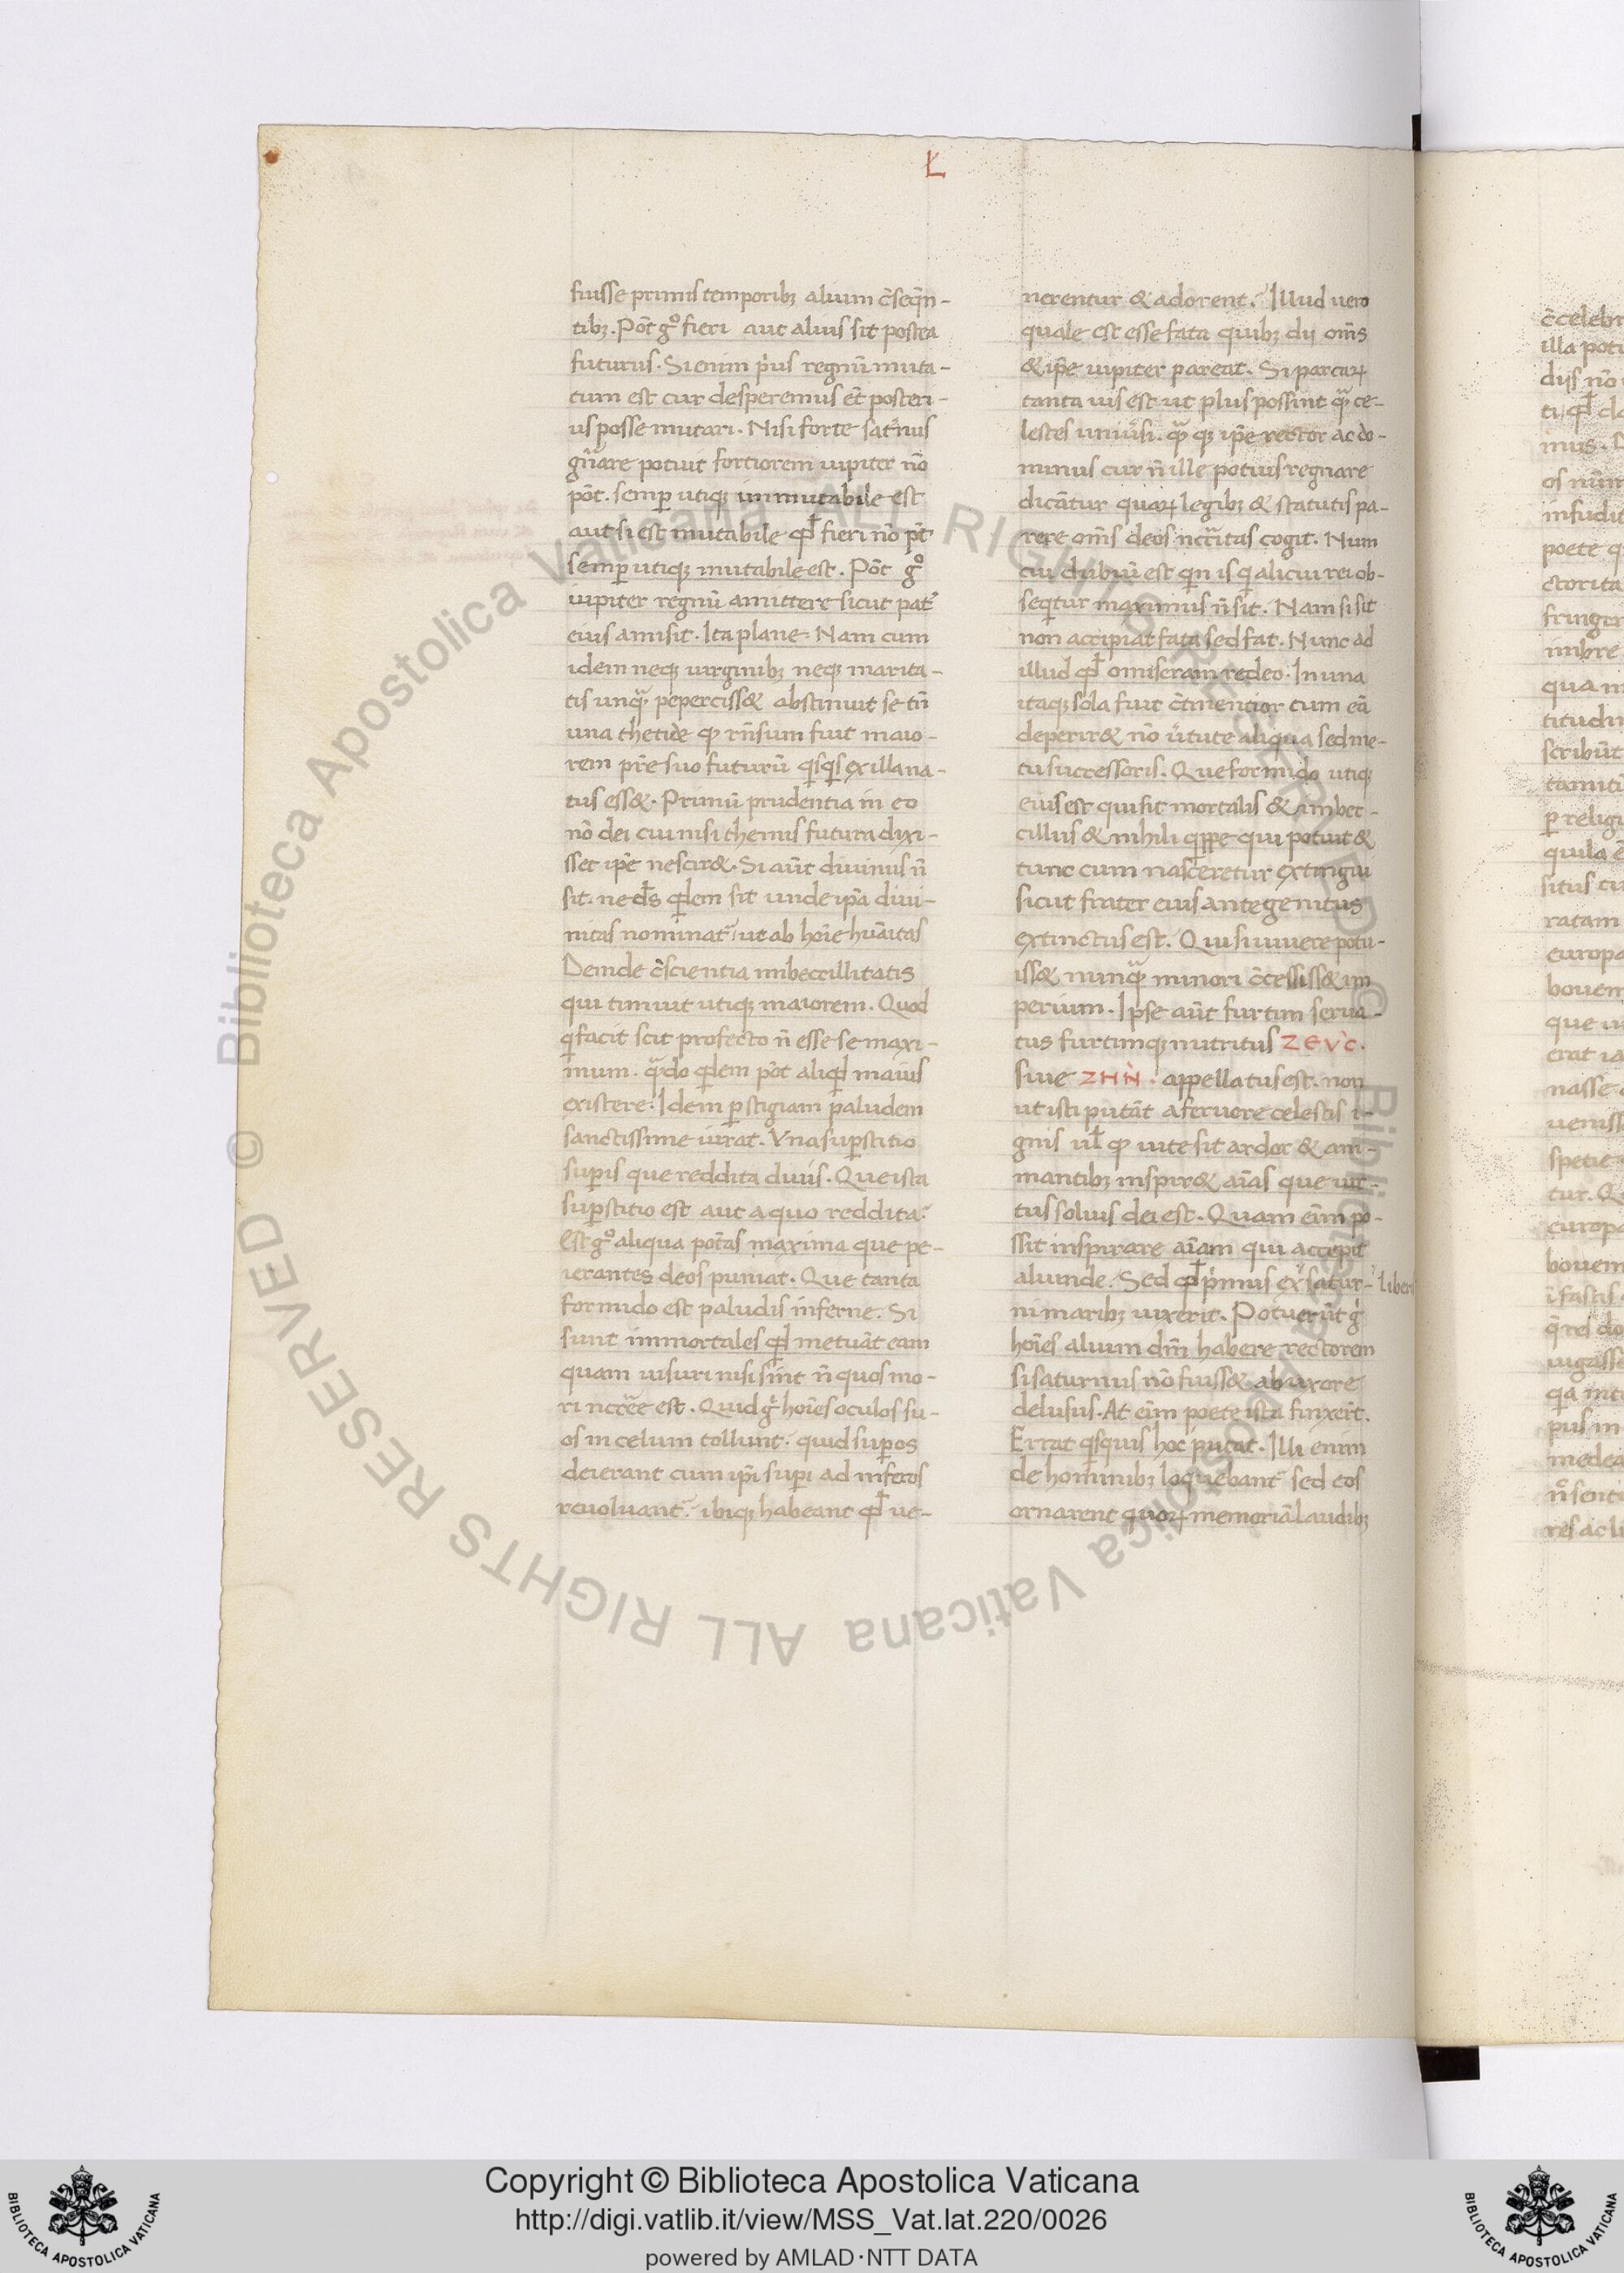 Ł
fuisse primis temporibꝫ alium c̄seq̄n-
tibꝫ. Pōt gͦ fieri aut alius sit postea
futurus. Si enim p̓us regnū muta-
tum est cur desperemus ēt posteri-
us posse mutari. Nisi forte sat̓nus
gn̄are potuit fortiorem iupiter nō
pōt. semꝑ utiqꝫ inmutabile est
aut si est mutabile qđ fieri nō pōt
semꝑ utiqꝫ mutabile est. Pōt gͦ
iupiter regnū amittere sicut pat̓
eius amisit. Ita plane. Nam cum
idem neqꝫ uirginibꝫ neqꝫ marita-
tis unqᷓ peperciss& abstinuit se tn̄
una thetide ꝙ rn̄sum fuit maio-
rem pr̄e suo futurū qͥsqͥs ex illa na-
tus ess&. Primū prudentia in eo
nō dei cui nisi themis futura dixi-
sset ip̄e nescir&. Si aūt diuinus n̄
sit. ne ds̄ qͥdem sit unde ip̄a diui-
nitas nominat̄ ut ab hoīe huāitas
Deinde c̄scientia imbeccillitatis
qui timuit utiqꝫ maiorem. Quod
qͥ facit scit profecto n̄ esse se maxi-
mum. qᷓdo qͥdem pōt aliqͥd maius
existere. Idem ꝑ stigiam paludem
sanctissime iurat. Vna suꝑstitio
suꝑis que reddita diuis. Que ista
suꝑstitio est aut a quo reddita?
Est gͦ aliqua potās maxima que pe-
ierantes deos puniat. Que tanta
formido est paludis inferne. Si
sunt immortales qͥd metuāt eam
quam uisuri nisi sint n̄ quos mo-
ri nccēe est. Quid gͥ hoīes oculos su-
os in celum tollunt. quid suꝑos
deierant cum ip̄i suꝑi ad inferos
reuoluant̄. ibiqꝫ habeant qđ ue-
nerentur & adorent. Illud uero
quale est esse fata quibꝫ dij om̄s
& ip̄e iupiter pareat. Si parcaꝝ
tanta uis est ut plus possint qᷓ ce-
lestes uniūsi. qᷓ qꝫ ip̄e rector ac do-
minus cur n̄ ille potius regnare
dicātur quaꝝ legibꝫ & statutis pa-
rere om̄s deos nccītas cogit. Num
cui dubiū est qͥn is qͥ alicui rei ob-
seqͥtur maximus n̄ sit. Nam si sit
non accipiat fata sed fat. Nunc ad
illud qđ omiseram redeo. In una
itaqꝫ sola fuit c̄tinentior cum eā
deperir& nō ūtute aliqua sed me-
tu successoris. Que formido utiqꝫ
eius est qui sit mortalis & imbec-
cillus & nihili qͥppe qui potuit &
tunc cum nasceretur extingui
sicut frater eius ante genitus
extinctus est. Qui si uiuere potu-
iss& nunqᷓ minori c̄cessiss& im
perium. Ipse aūt furtim serua-
tus furtimqꝫ nutritus ΖΕΥϹ.
siue ΖΗΝ. appellatus est. non
ut isti putāt a feruore celestis i-
gnis ul̄ ꝙ uite sit ardor & ani-
mantibꝫ inspir& aīas que uir-
tus solius dei est. Quam eīm po-
ssit inspirare aīam qui accepit
aliunde. Sed qđ p̓mus ex satur-
liberi
ni maribꝫ uixerit. Potuerūt gͥ
hoīes alium dm̄ habere rectorem
si saturnus nō fuiss& ab uxore
delusus. At eīm poete ista finxeīt.
Errat qͥsquis hoc putat. Illi enim
de hominibꝫ loquebant̄ sed eos
ornarent quoꝝ memoriā laudibꝫ
Copyright © Biblioteca Apostolica Vaticana
http://digi.vatlib.it/view/MSS_Vat.lat.220/0026
powered by AMLAD·NTT DATA
BIBLIOTECA APOSTOLICA VATICANA
BIBLIOTECA APOSTOLICA VATICANA
© Biblioteca Apostolica Vaticana ALL RIGHTS RESERVED
© Biblioteca Apostolica Vaticana ALL RIGHTS RESERVED